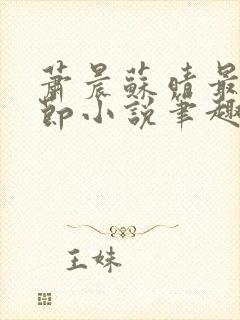 蕭晨蘇晴最
節小說筆趣
王妹